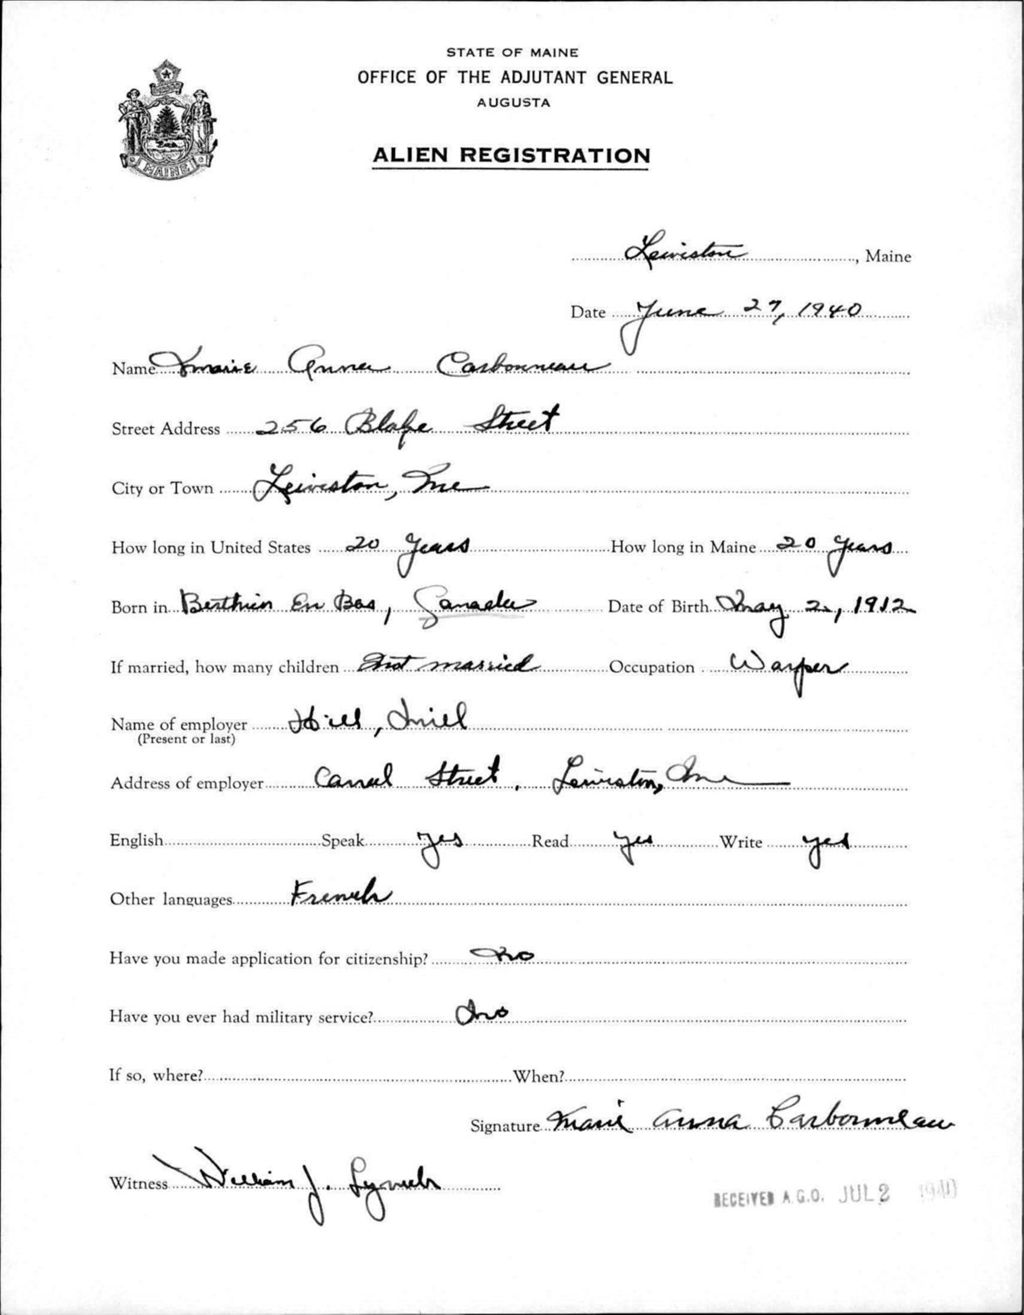 STATE OF MAINE
OFFICE OF THE ADJUTANT GENERAL
AUGUSTA
ALIEN REGISTRATION
MAINE
Lewiston, Maine
Date June 27, 1940
Name Marie Anna Carbonneau
Street Address 256 Blake Street
City or Town Lewiston, Me
How long in United States 20 years How long in Maine 20 years
Born in Berthier En Bas, Canada Date of Birth May 2, 1912
If married, how many children Not married Occupation Warper
Name of employer Hill, Mill
(Present or last)
Address of employer Canal Street, Lewiston, Me
English Speak yes Read yes Write yes
Other languages French
Have you made application for citizenship? No
Have you ever had military service? No
If so, where? When?
Signature Marie Anna Carbonneau
Witness William J. Lynch
RECEIVED A.G.O. JUL 2 1940